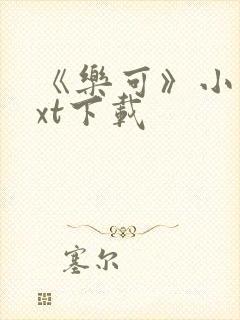 《樂可》小
xt下載
塞尔